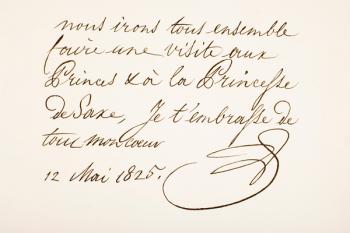 nous irons tous ensemble
faire une visite aux
Princes & à la Princesse
de Saxe, Je t'embrasse de
tout mon cœur
12 Mai 1825.